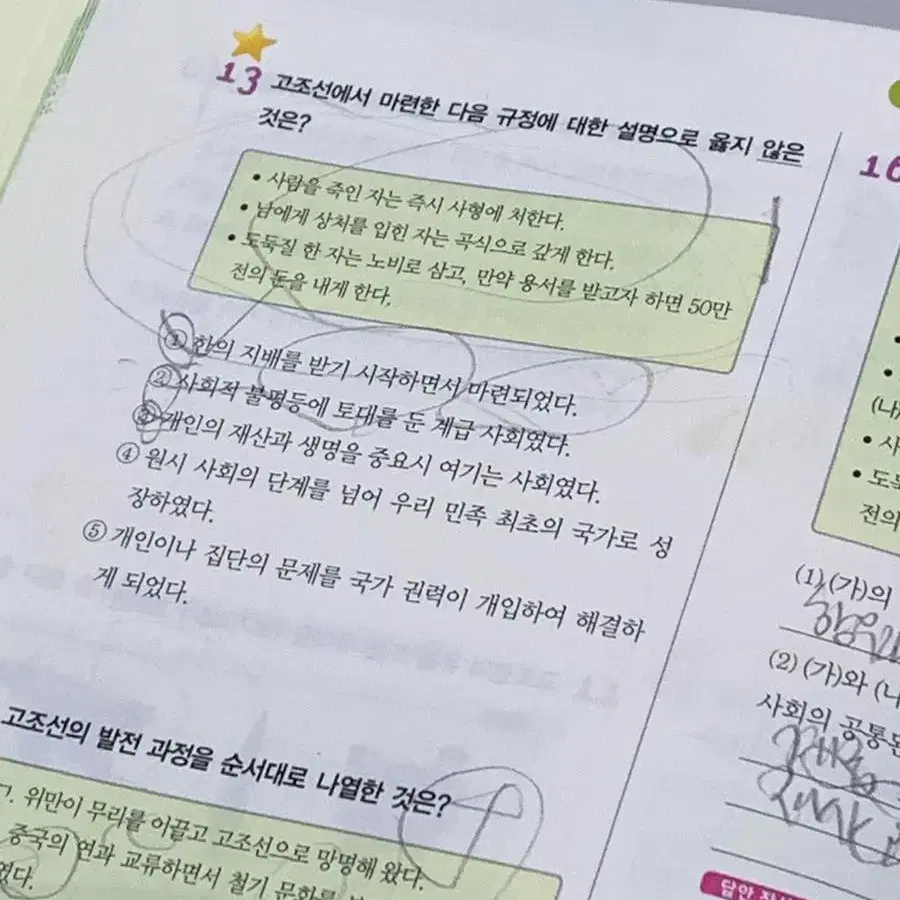 13 고조선에서 마련한 다음 규정에 대한 설명으로 옳지 않은
것은?
• 사람을 죽인 자는 즉시 사형에 처한다.
• 남에게 상처를 입힌 자는 곡식으로 갚게 한다.
• 도둑질 한 자는 노비로 삼고, 만약 용서를 받고자 하면 50만
전의 돈을 내게 한다.
① 한의 지배를 받기 시작하면서 마련되었다.
② 사회적 불평등에 토대를 둔 계급 사회였다.
③ 개인의 재산과 생명을 중요시 여기는 사회였다.
④ 원시 사회의 단계를 넘어 우리 민족 최초의 국가로 성
장하였다.
⑤ 개인이나 집단의 문제를 국가 권력이 개입하여 해결하
게 되었다.
고조선의 발전 과정을 순서대로 나열한 것은?
ㄱ. 위만이 무리를 이끌고 고조선으로 망명해 왔다.
중국의 연과 교류하면서 철기 문화를
였다.
16
(나)
• 사
• 도둑
전의
(1) (가)의
(2) (가)와 (나
사회의 공통된
답안